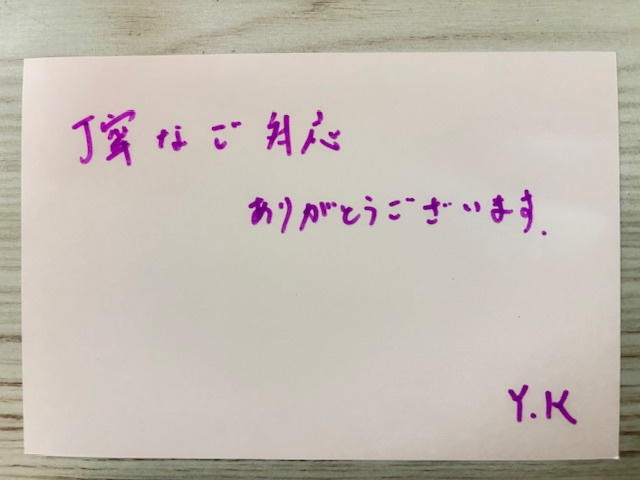 丁寧なご対応
ありがとうございます.
Y.K